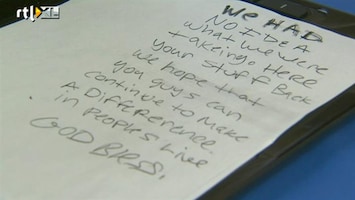 rtl XL
WE HAD
NO IDEA
WHAT WE WERE
TAKEING. HERE
YOUR STUFF BACK
WE HOPE THAT
YOU GUYS CAN
CONTINUE TO MAKE
A DIFFERENCE
IN PEOPLES LIVE
GOD BLESS.